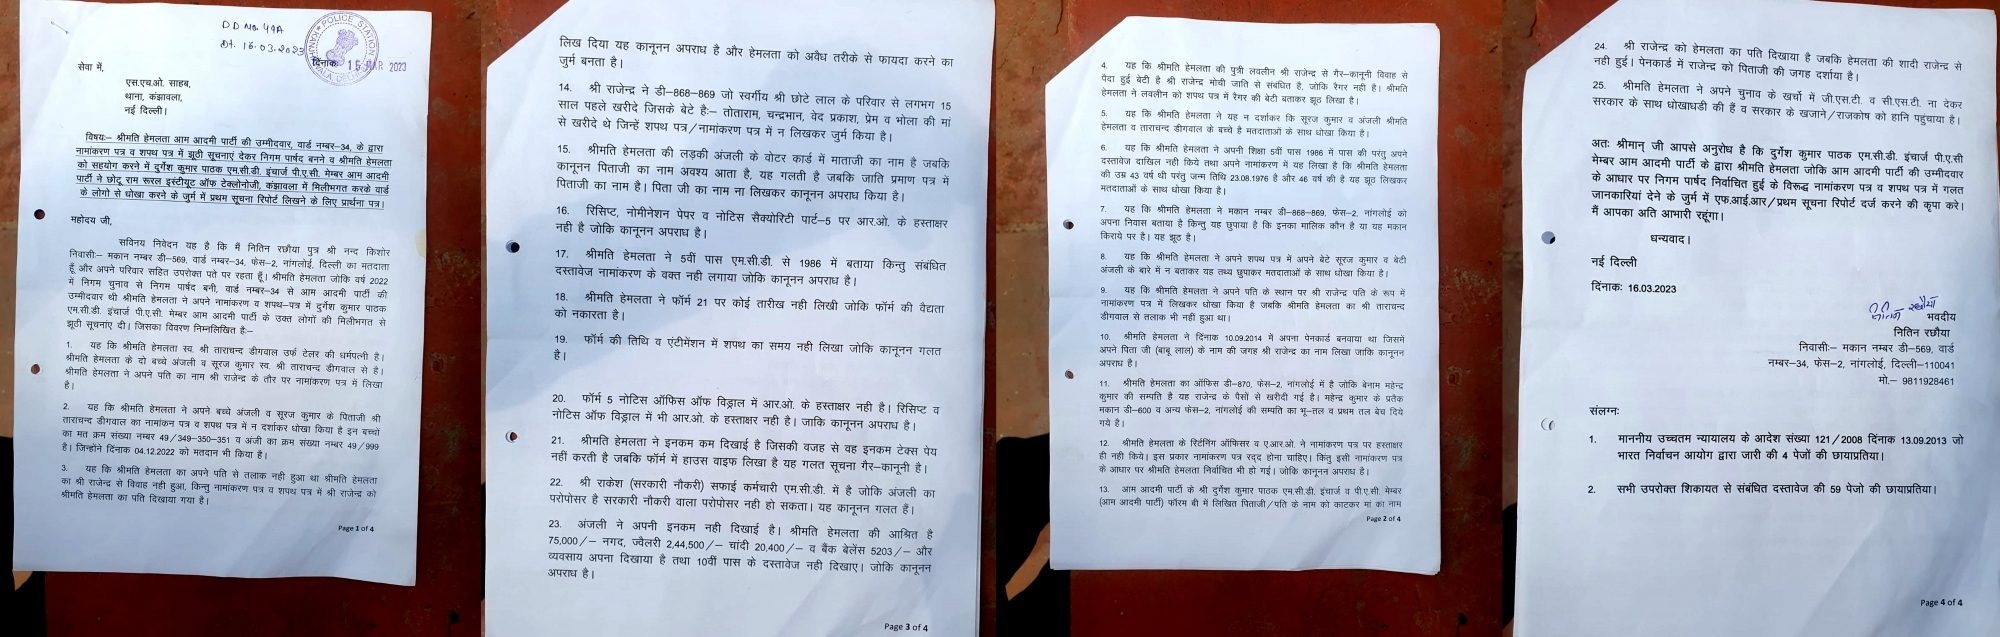 DD No. 49A
Dt. 16.03.2023
POLICE STATION
KANJHAWALA, DELHI
दिनांक 16 MAR 2023
सेवा में,
एस.एच.ओ. साहब,
थाना, कंझावला,
नई दिल्ली।
विषयः– श्रीमति हेमलता आम आदमी पार्टी की उम्मीदवार, वार्ड नम्बर–34, के द्वारा
नामांकरण पत्र व शपथ पत्र में झूठी सूचनाएं देकर निगम पार्षद बनने व श्रीमति हेमलता
को सहयोग करने में दुर्गेश कुमार पाठक एम.सी.डी. इंचार्ज पी.ए.सी. मेम्बर आम आदमी
पार्टी ने छोटू राम रूरल इंस्टीयूट ऑफ टेक्लोनोजी, कंझावला में मिलीभगत करके वार्ड
के लोगो से धोखा करने के जुर्म में प्रथम सूचना रिपोर्ट लिखने के लिए प्रार्थना पत्र।
महोदय जी,
सविनय निवेदन यह है कि मैं नितिन रछौया पुत्र श्री नन्द किशोर
निवासीः– मकान नम्बर डी–569, वार्ड नम्बर–34, फेस–2, नांगलोई, दिल्ली का मतदाता
हूँ और अपने परिवार सहित उपरोक्त पते पर रहता हूँ। श्रीमति हेमलता जोकि वर्ष 2022
में निगम चुनाव से निगम पार्षद बनी, वार्ड नम्बर–34 से आम आदमी पार्टी की
उम्मीदवार थी श्रीमति हेमलता ने अपने नामांकरण व शपथ–पत्र में दुर्गेश कुमार पाठक
एम.सी.डी. इंचार्ज पी.ए.सी. मेम्बर आम आदमी पार्टी के उक्त लोगों की मिलीभगत से
झूठी सूचनाएं दी। जिसका विवरण निम्नलिखित हैः–
1. यह कि श्रीमति हेमलता स्व. श्री ताराचन्द डीगवाल उर्फ टेलर की धर्मपत्नी है।
श्रीमति हेमलता के दो बच्चे अंजली व सूरज कुमार स्व. श्री ताराचन्द डीगवाल से है।
श्रीमति हेमलता ने अपने पति का नाम श्री राजेन्द्र के तौर पर नामांकरण पत्र में लिखा
है।
2. यह कि श्रीमति हेमलता ने अपने बच्चे अंजली व सूरज कुमार के पिताजी श्री
ताराचन्द डीगवाल का नामांकन पत्र व शपथ पत्र में न दर्शाकर धोखा किया है इन बच्चों
का मत क्रम संख्या नम्बर 49/349–350–351 व अंजी का क्रम संख्या नम्बर 49/999
है। जिन्होंने दिनांक 04.12.2022 को मतदान भी किया है।
3. यह कि श्रीमति हेमलता का अपने पति से तलाक नही हुआ था श्रीमति हेमलता
का श्री राजेन्द्र से विवाह नही हुआ, किन्तु नामांकरण पत्र व शपथ पत्र में श्री राजेन्द्र को
श्रीमति हेमलता का पति दिखाया गया है।
Page 1 of 4
लिख दिया यह कानूनन अपराध है और हेमलता को अवैध तरीके से फायदा करने का
जुर्म बनता है।
14. श्री राजेन्द्र ने डी–868–869 जो स्वर्गीय श्री छोटे लाल के परिवार से लगभग 15
साल पहले खरीदे जिसके बेटे हैः– तोताराम, चन्द्रभान, वेद प्रकाश, प्रेम व भोला की मां
से खरीदे थे जिन्हें शपथ पत्र/नामांकरण पत्र में न लिखकर जुर्म किया है।
15. श्रीमति हेमलता की लड़की अंजली के वोटर कार्ड में माताजी का नाम है जबकि
कानूनन पिताजी का नाम अवश्य आता है, यह गलती है जबकि जाति प्रमाण पत्र में
पिताजी का नाम है। पिता जी का नाम ना लिखकर कानूनन अपराध किया है।
16. रिसिप्ट, नोमीनेशन पेपर व नोटिस सैक्योरिटी पार्ट–5 पर आर.ओ. के हस्ताक्षर
नही है जोकि कानूनन अपराध है।
17. श्रीमति हेमलता ने 5वीं पास एम.सी.डी. से 1986 में बताया किन्तु संबंधित
दस्तावेज नामांकरण के वक्त नही लगाया जोकि कानूनन अपराध है।
18. श्रीमति हेमलता ने फॉर्म 21 पर कोई तारीख नही लिखी जोकि फॉर्म की वैद्यता
को नकारता है।
19. फॉर्म की तिथि व एंटीमेंशन में शपथ का समय नही लिखा जोकि कानूनन गलत
है।
20. फॉर्म 5 नोटिस ऑफिस ऑफ विड्राल में आर.ओ. के हस्ताक्षर नही है। रिसिप्ट व
नोटिस ऑफ विड्राल में भी आर.ओ. के हस्ताक्षर नही है। जाकि कानूनन अपराध है।
21. श्रीमति हेमलता ने इनकम कम दिखाई है जिसकी वजह से वह इनकम टेक्स पेय
नहीं करती है जबकि फॉर्म में हाउस वाइफ लिखा है यह गलत सूचना गैर–कानूनी है।
22. श्री राकेश (सरकारी नौकरी) सफाई कर्मचारी एम.सी.डी. में है जोकि अंजली का
परोपोसर है सरकारी नौकरी वाला परोपोसर नही हो सकता। यह कानूनन गलत हैं।
23. अंजली ने अपनी इनकम नही दिखाई है। श्रीमति हेमलता की आश्रित है
75,000/– नगद, ज्वैलरी 2,44,500/– चांदी 20,400/– व बैंक बेलेंस 5203/– और
व्यवसाय अपना दिखाया है तथा 10वीं पास के दस्तावेज नही दिखाए। जोकि कानूनन
अपराध है।
Page 3 of 4
4. यह कि श्रीमति हेमलता की पुत्री लवलीन श्री राजेन्द्र से गैर–कानूनी विवाह से
पैदा हुई बेटी है श्री राजेन्द्र मोची जाति से संबंधित है, जोकि रैगर नही है। श्रीमति
हेमलता ने लवलीन को शपथ पत्र में रैगर की बेटी बताकर झूठ लिखा है।
5. यह कि श्रीमति हेमलता ने यह न दर्शाकर कि सूरज कुमार व अंजली श्रीमति
हेमलता व ताराचन्द डीगवाल के बच्चे है मतदाताओं के साथ धोखा किया है।
6. यह कि श्रीमति हेमलता ने अपनी शिक्षा 5वीं पास 1986 में पास की परंतु अपने
दस्तावेज दाखिल नही किये तथा अपने नामांकरण में यह लिखा है कि श्रीमति हेमलता
की उम्र 43 वर्ष थी परंतु जन्म तिथि 23.08.1976 है और 46 वर्ष की है यह झूठ लिखकर
मतदाताओं के साथ धोखा किया है।
7. यह कि श्रीमति हेमलता ने मकान नम्बर डी–868–869, फेस–2, नांगलोई को
अपना निवास बताया है किन्तु यह छुपाया है कि इनका मालिक कौन है या यह मकान
किराये पर है। यह झूठ है।
8. यह कि श्रीमति हेमलता ने अपने शपथ पत्र में अपने बेटे सूरज कुमार व बेटी
अंजली के बारे में न बताकर यह तथ्य छुपाकर मतदाताओं के साथ धोखा किया है।
9. यह कि श्रीमति हेमलता ने अपने पति के स्थान पर श्री राजेन्द्र पति के रूप में
नामांकरण पत्र में लिखकर धोखा किया है जबकि श्रीमति हेमलता का श्री ताराचन्द
डीगवाल से तलाक भी नही हुआ था।
10. श्रीमति हेमलता ने दिनांक 10.09.2014 में अपना पेनकार्ड बनवाया था जिसमें
अपने पिता जी (बाबू लाल) के नाम की जगह श्री राजेन्द्र का नाम लिखा जाकि कानूनन
अपराध है।
11. श्रीमति हेमलता का ऑफिस डी–870, फेस–2, नांगलोई में है जोकि बेनाम महेन्द्र
कुमार की सम्पति है यह राजेन्द्र के पैसों से खरीदी गई है। महेन्द्र कुमार के प्रतैक
मकान डी–600 व अन्य फेस–2, नांगलोई की सम्पति का भू–तल व प्रथम तल बेच दिये
गये है।
12. श्रीमति हेमलता के रिर्टनिंग ऑफिसर व ए.आर.ओ. ने नामांकरण पत्र पर हस्ताक्षर
ही नही किये। इस प्रकार नामांकरण पत्र रद्द होना चाहिए। किंतु इसी नामांकरण पत्र
के आधार पर श्रीमति हेमलता निर्वाचित भी हो गई। जोकि कानूनन अपराध है।
13. आम आदमी पार्टी के श्री दुर्गेश कुमार पाठक एम.सी.डी. इंचार्ज व पी.ए.सी. मेम्बर
(आम आदमी पार्टी) फॉरम बी में लिखित पिताजी/पति के नाम को काटकर मां का नाम
Page 2 of 4
24. श्री राजेन्द्र को हेमलता का पति दिखाया है जबकि हेमलता की शादी राजेन्द्र से
नही हुई। पेनकार्ड में राजेन्द्र को पिताजी की जगह दर्शाया है।
25. श्रीमति हेमलता ने अपने चुनाव के खर्चो में जी.एस.टी. व सी.एस.टी. ना देकर
सरकार के साथ धोखाधडी की हैं व सरकार के खजाने/राजकोष को हानि पहुंचाया है।
अतः श्रीमान् जी आपसे अनुरोध है कि दुर्गेश कुमार पाठक एम.सी.डी. इंचार्ज पी.ए.सी
मेम्बर आम आदमी पार्टी के द्वारा श्रीमति हेमलता जोकि आम आदमी पार्टी की उम्मीदवार
के आधार पर निगम पार्षद निर्वाचित हुई के विरूद्ध नामांकरण पत्र व शपथ पत्र में गलत
जानकारियां देने के जुर्म में एफ.आई.आर/प्रथम सूचना रिपोर्ट दर्ज करने की कृपा करे।
मैं आपका अति आभारी रहूंगा।
धन्यवाद।
नई दिल्ली
दिनांकः 16.03.2023
भवदीय
नितिन रछौया
निवासीः– मकान नम्बर डी–569, वार्ड
नम्बर–34, फेस–2, नांगलोई, दिल्ली–110041
मो.– 9811928461
संलग्नः
1. माननीय उच्चतम न्यायालय के आदेश संख्या 121/2008 दिनांक 13.09.2013 जो
भारत निर्वाचन आयोग द्वारा जारी की 4 पेजों की छायाप्रतिया।
2. सभी उपरोक्त शिकायत से संबंधित दस्तावेज की 59 पेजो की छायाप्रतिया।
Page 4 of 4